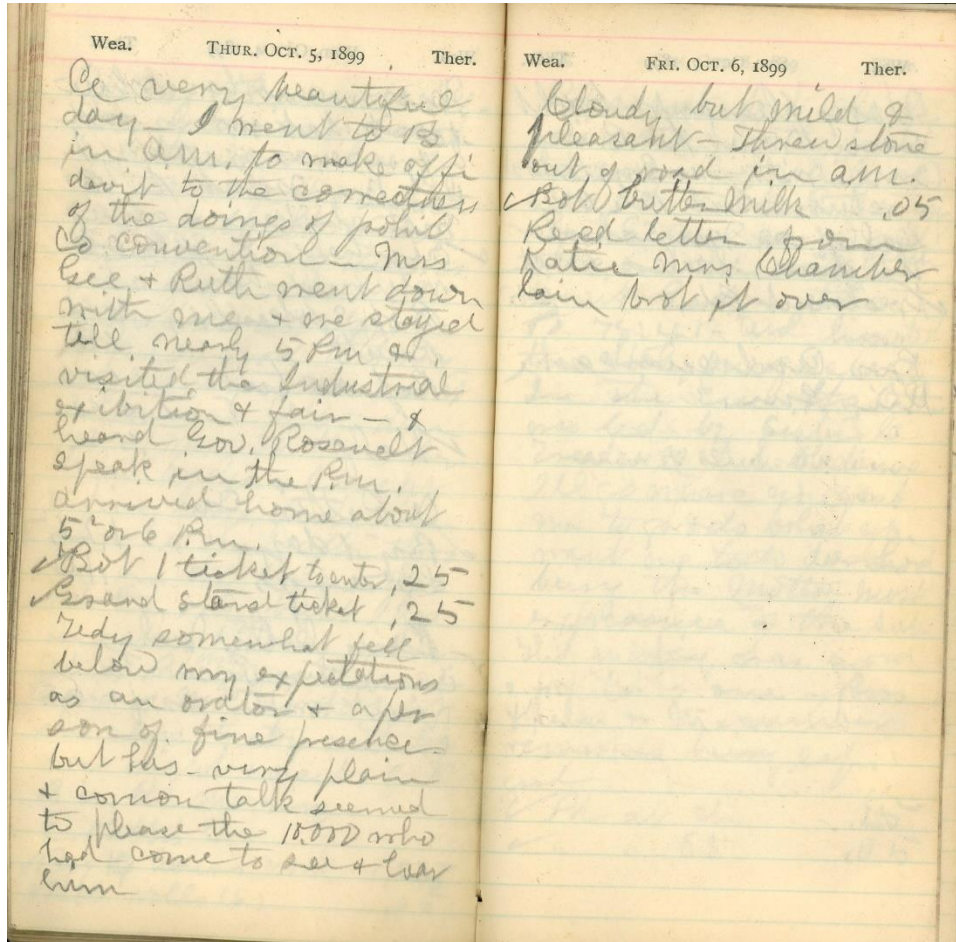 Wea. THUR. OCT. 5, 1899 Ther.
A very beautiful
day - I went to B
in a.m. to make affi
davit to the correctness
of the doings of pohil
Co convention - Mrs
Gee & Ruth went down
with me & we stayed
till nearly 5 P.m. &
visited the Industrial
exibition & fair - &
heard Gov. Rosevelt
speak in the P.m.
arrived home about
5 or 6 P.m.
Bot 1 ticket to enter .25
Grand stand ticket .25
Tedy somewhat fell
below my expectations
as an orator & a per
son of fine presence -
but his - very plain
& comon talk seemed
to please the 10,000 who
had come to see & hear
him
Wea. FRI. OCT. 6, 1899 Ther.
Cloudy but mild &
pleasant - Threw stone
out of road in a.m.
Bot butter milk .05
Recd letter from
Katie Mrs Chamber
lain brot it over